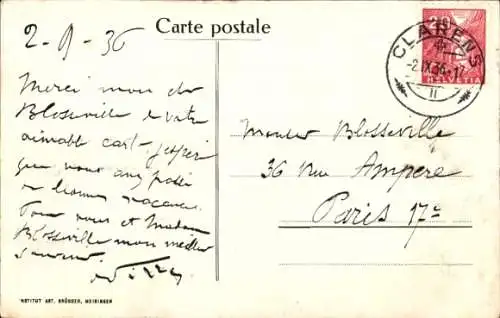 Carte postale
2-9-36
Merci mon cher
Blosseville de votre
aimable carte. J'espère
que vous avez passé
de bonnes vacances.
Pour vous et Madame
Blosseville mon meilleur
souvenir
CLARENS
-2.IX.36.-17
II
20
HELVETIA
Monsieur Blosseville
36 Rue Ampere
Paris 17e
INSTITUT ART. BRÜGGER, MEIRINGEN